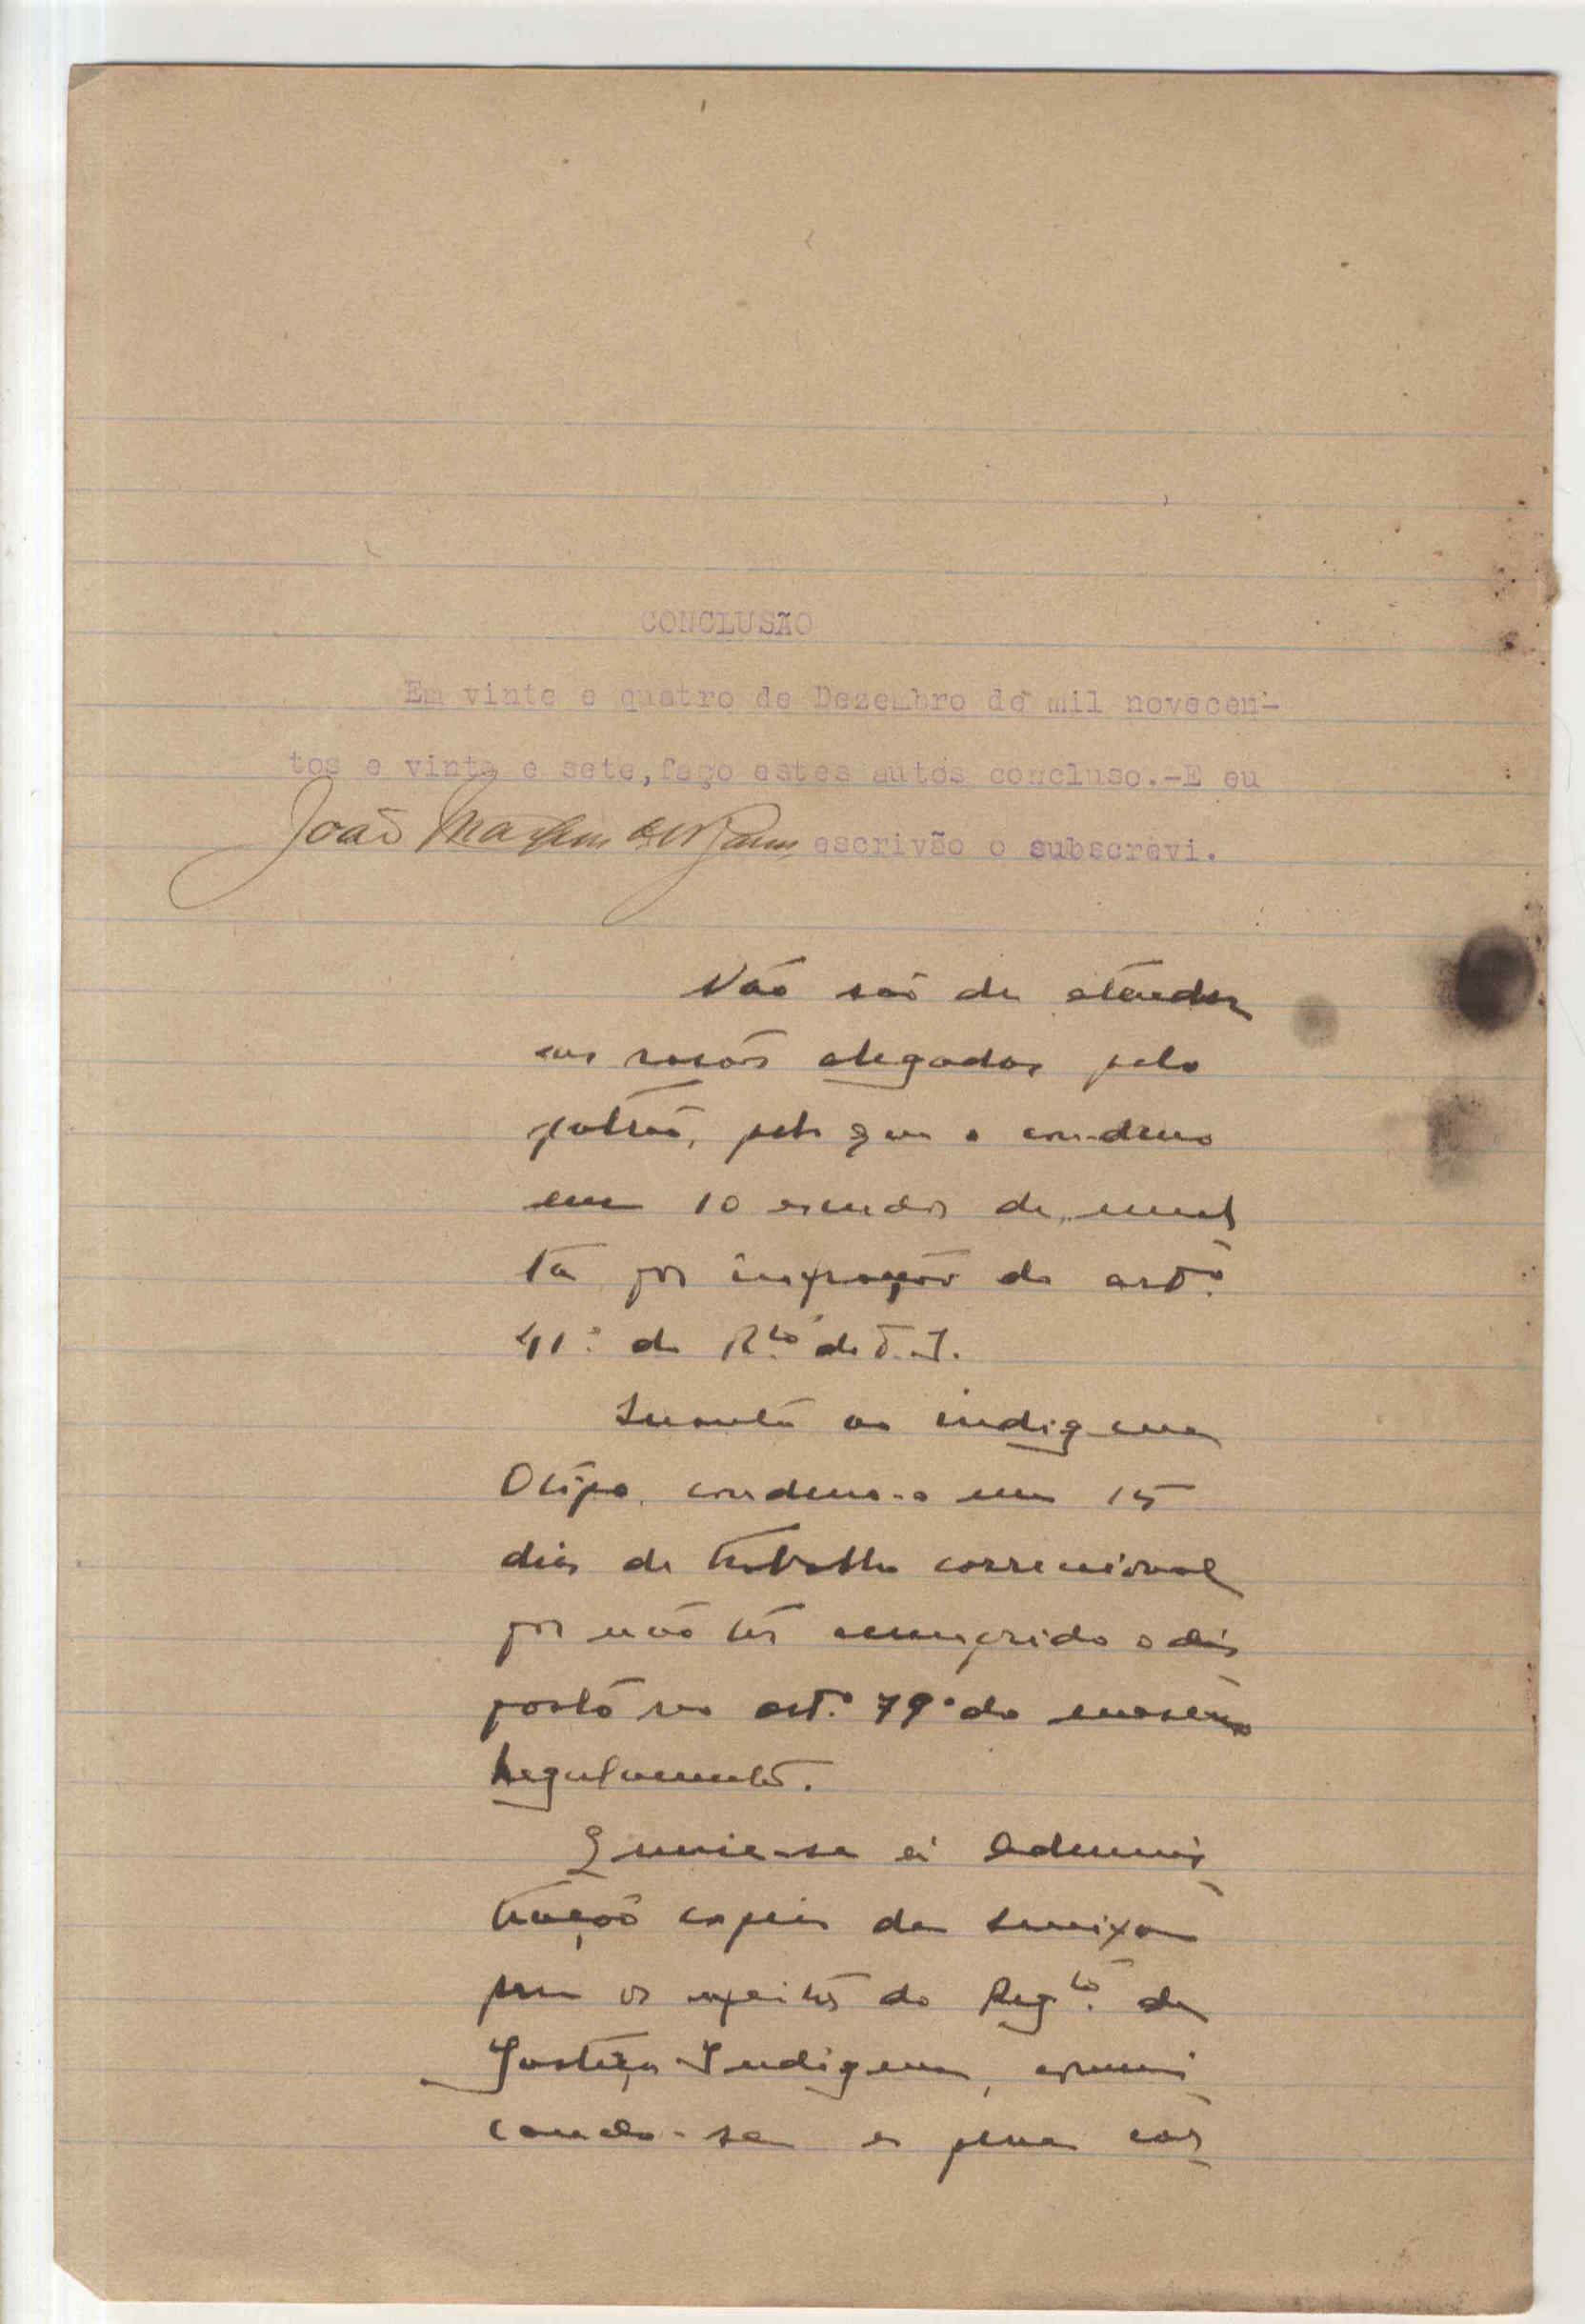 CONCLUSÃO
Em vinte e quatro de Dezembro de mil novecen-
tos e vinte e sete, faço estes autos concluso.-E eu
João escrivão o subscrevi.
Não são de atender
as rasões alegadas pelo
patrão, pelo que o condeno
em 10 escudos de mul
ta por infração do artº.
41º. do R.to do T. I.
Quanto ao indigena
condeno-o em 15
dias de trabalho correcional
por não ter cumprido o dis
posto no art.º 79º do mesmo
Regulamento.
Envie-se á Adminis
tração copia da
para os efeitos do Reg.to da
Justiça Indigena, comuni
cando-se a pena aos